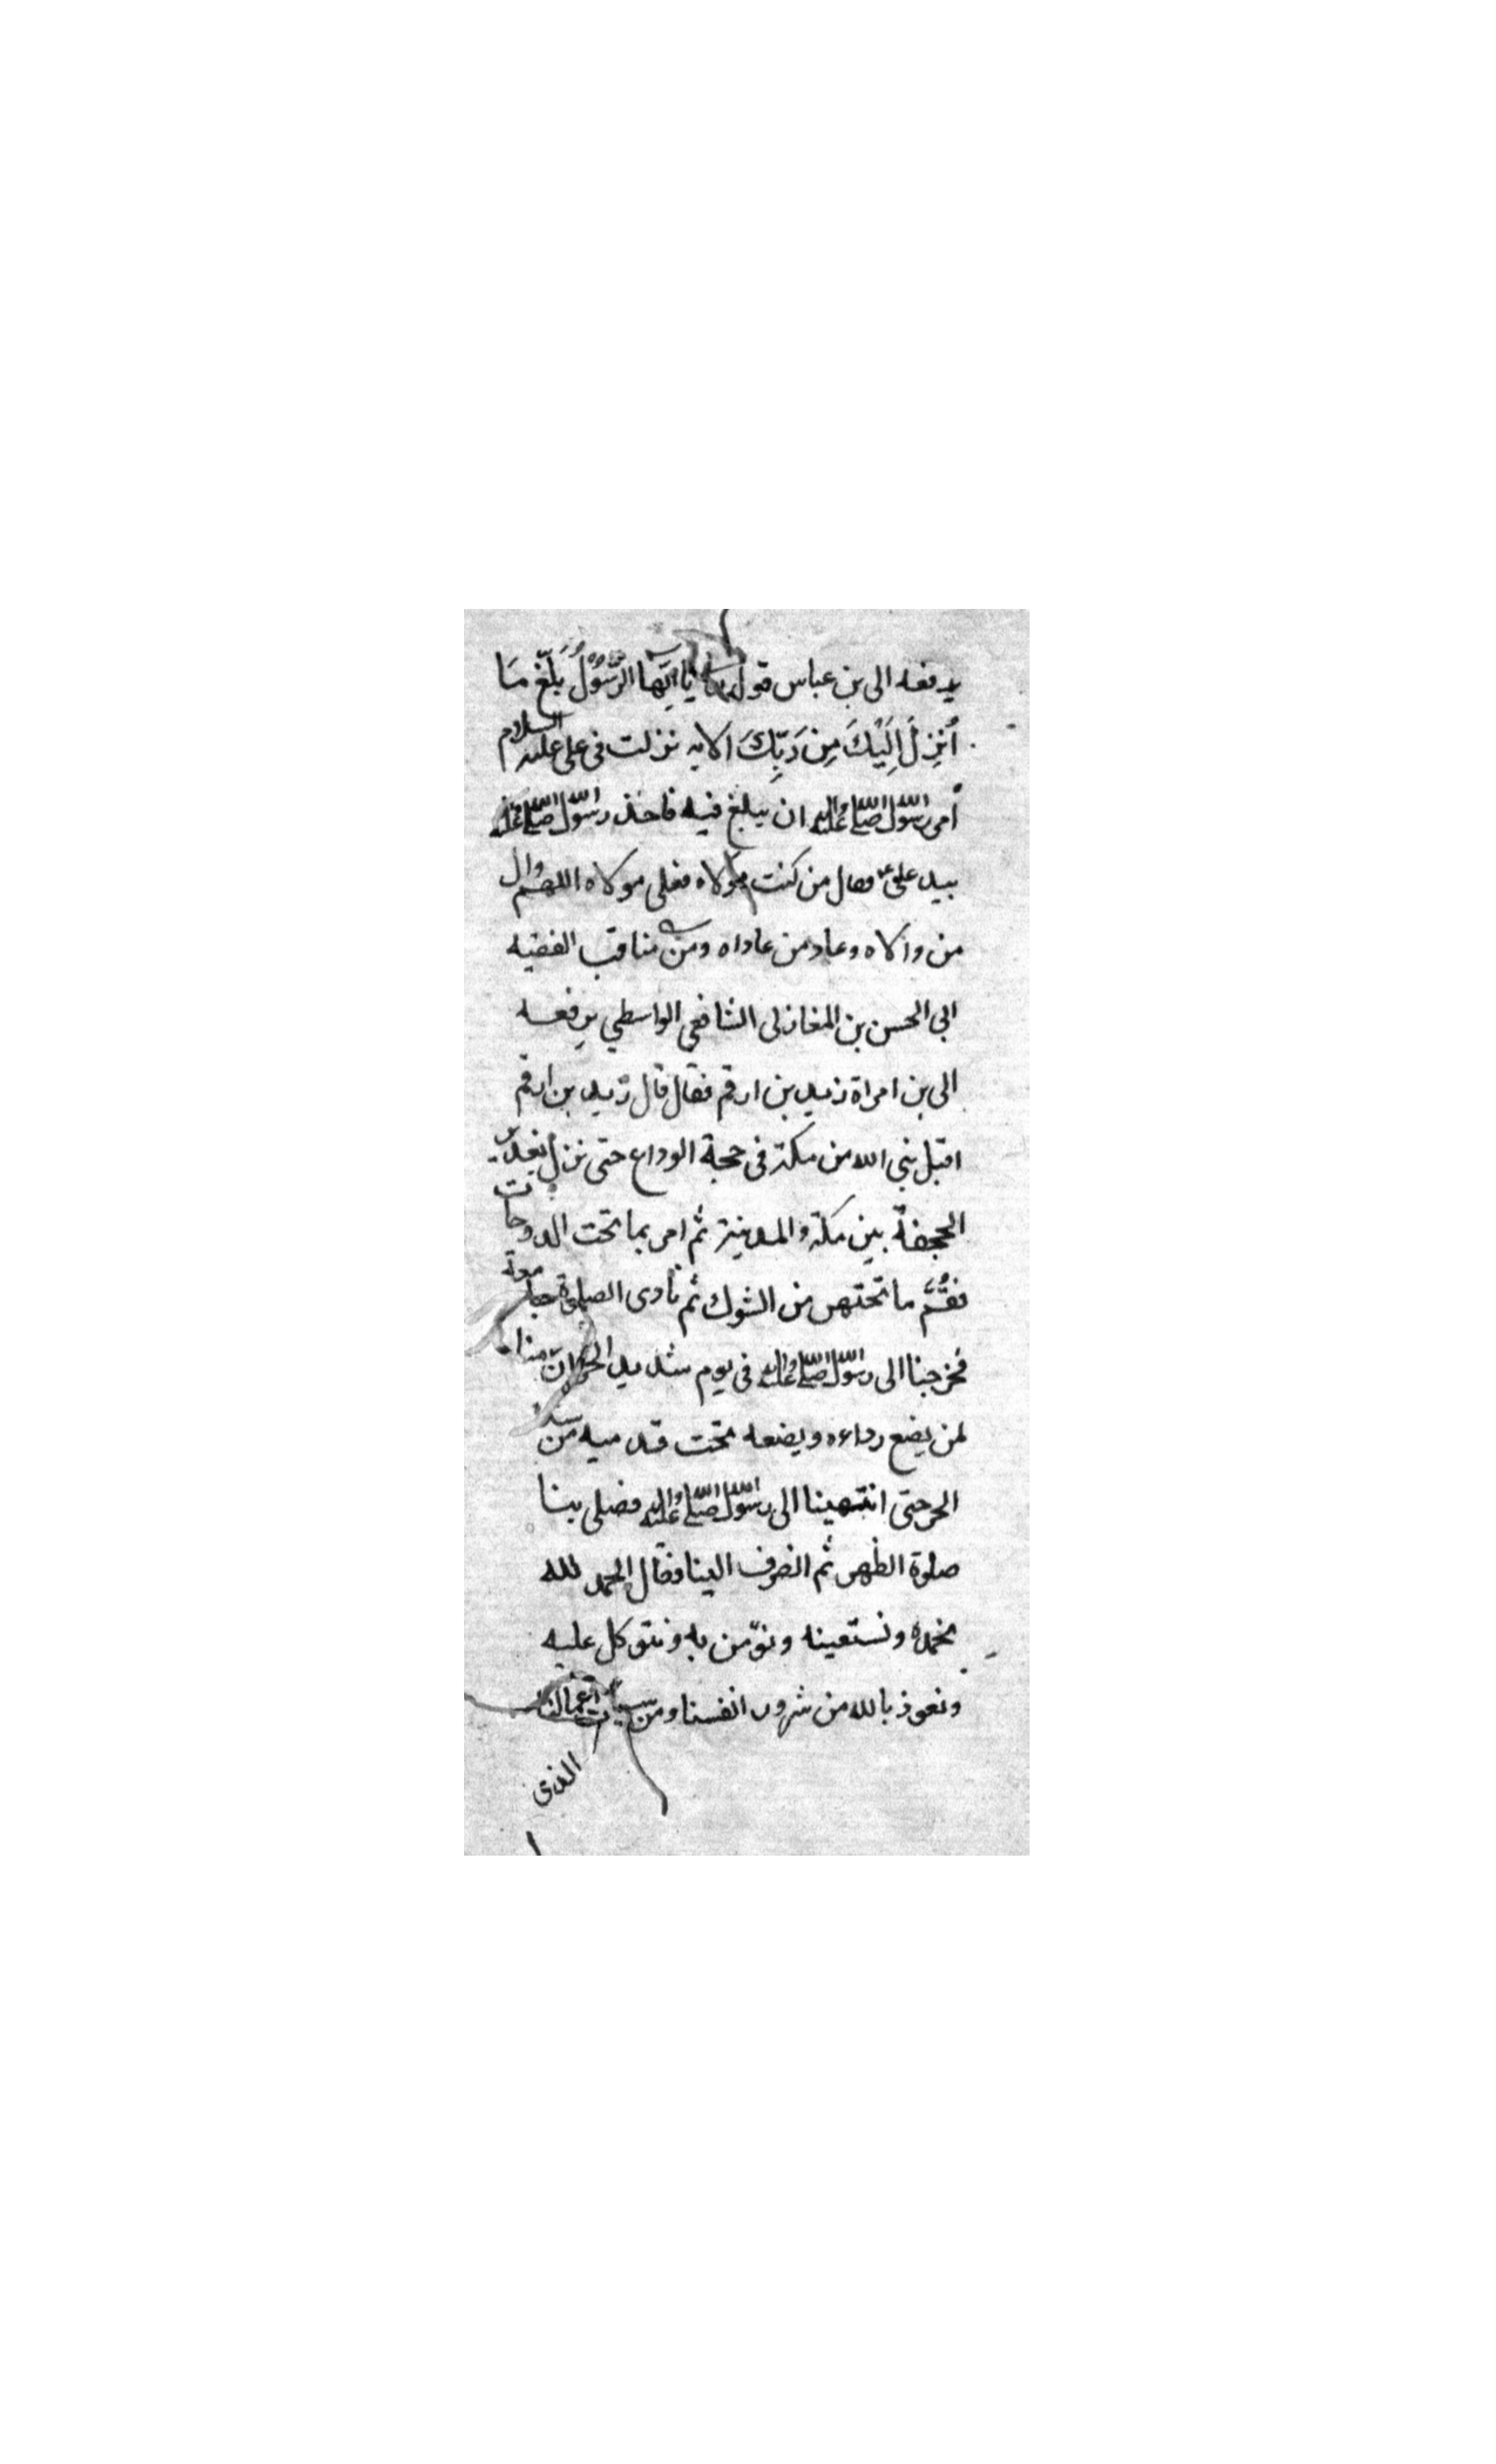 يرفعه الى بن عباس قوله تعالى يا ايّها الرّسُولُ بَلِّغ مَا
اُنزِلَ اِلَيْكَ مِن رَبِّكَ الايه نزلت فى على عليه السلام
اُمر رسول الله صلى الله عليه واله ان يبلغ فيه فاخذ رسول الله صلى الله عليه
بيد على ع وقال من كنت مولاه فعلى مولاه اللهم وال
من والاه وعاد من عاداه ومن مناقب الفقيه
ابى الحسن بن المغازلى الشافعي الواسطي يرفعه
الى بن امراة زيد بن ارقم فقال قال زيد بن ارقم
اقبل نبى الله من مكة فى حجة الوداع حتى نزل بغدير
الجحفة بين مكة والمدينة ثم امر بما تحت الدوحات
فقُمَّ ما تحتهن من الشوك ثم نادى الصلوة جامعة
فخرجنا الى رسول الله صلى الله عليه واله فى يوم شديد الحر وانّ منا
لمن يضع رداءه ويضعه تحت قدميه من شدة
الحر حتى انتهينا الى رسول الله صلى الله عليه واله فصلى بنا
صلوة الظهر ثم انصرف الينا وقال الحمد لله
نحمده ونستعينه ونؤمن به ونتوكل عليه
ونعوذ بالله من شرور انفسنا ومن سيئات اعمالنا
الذى